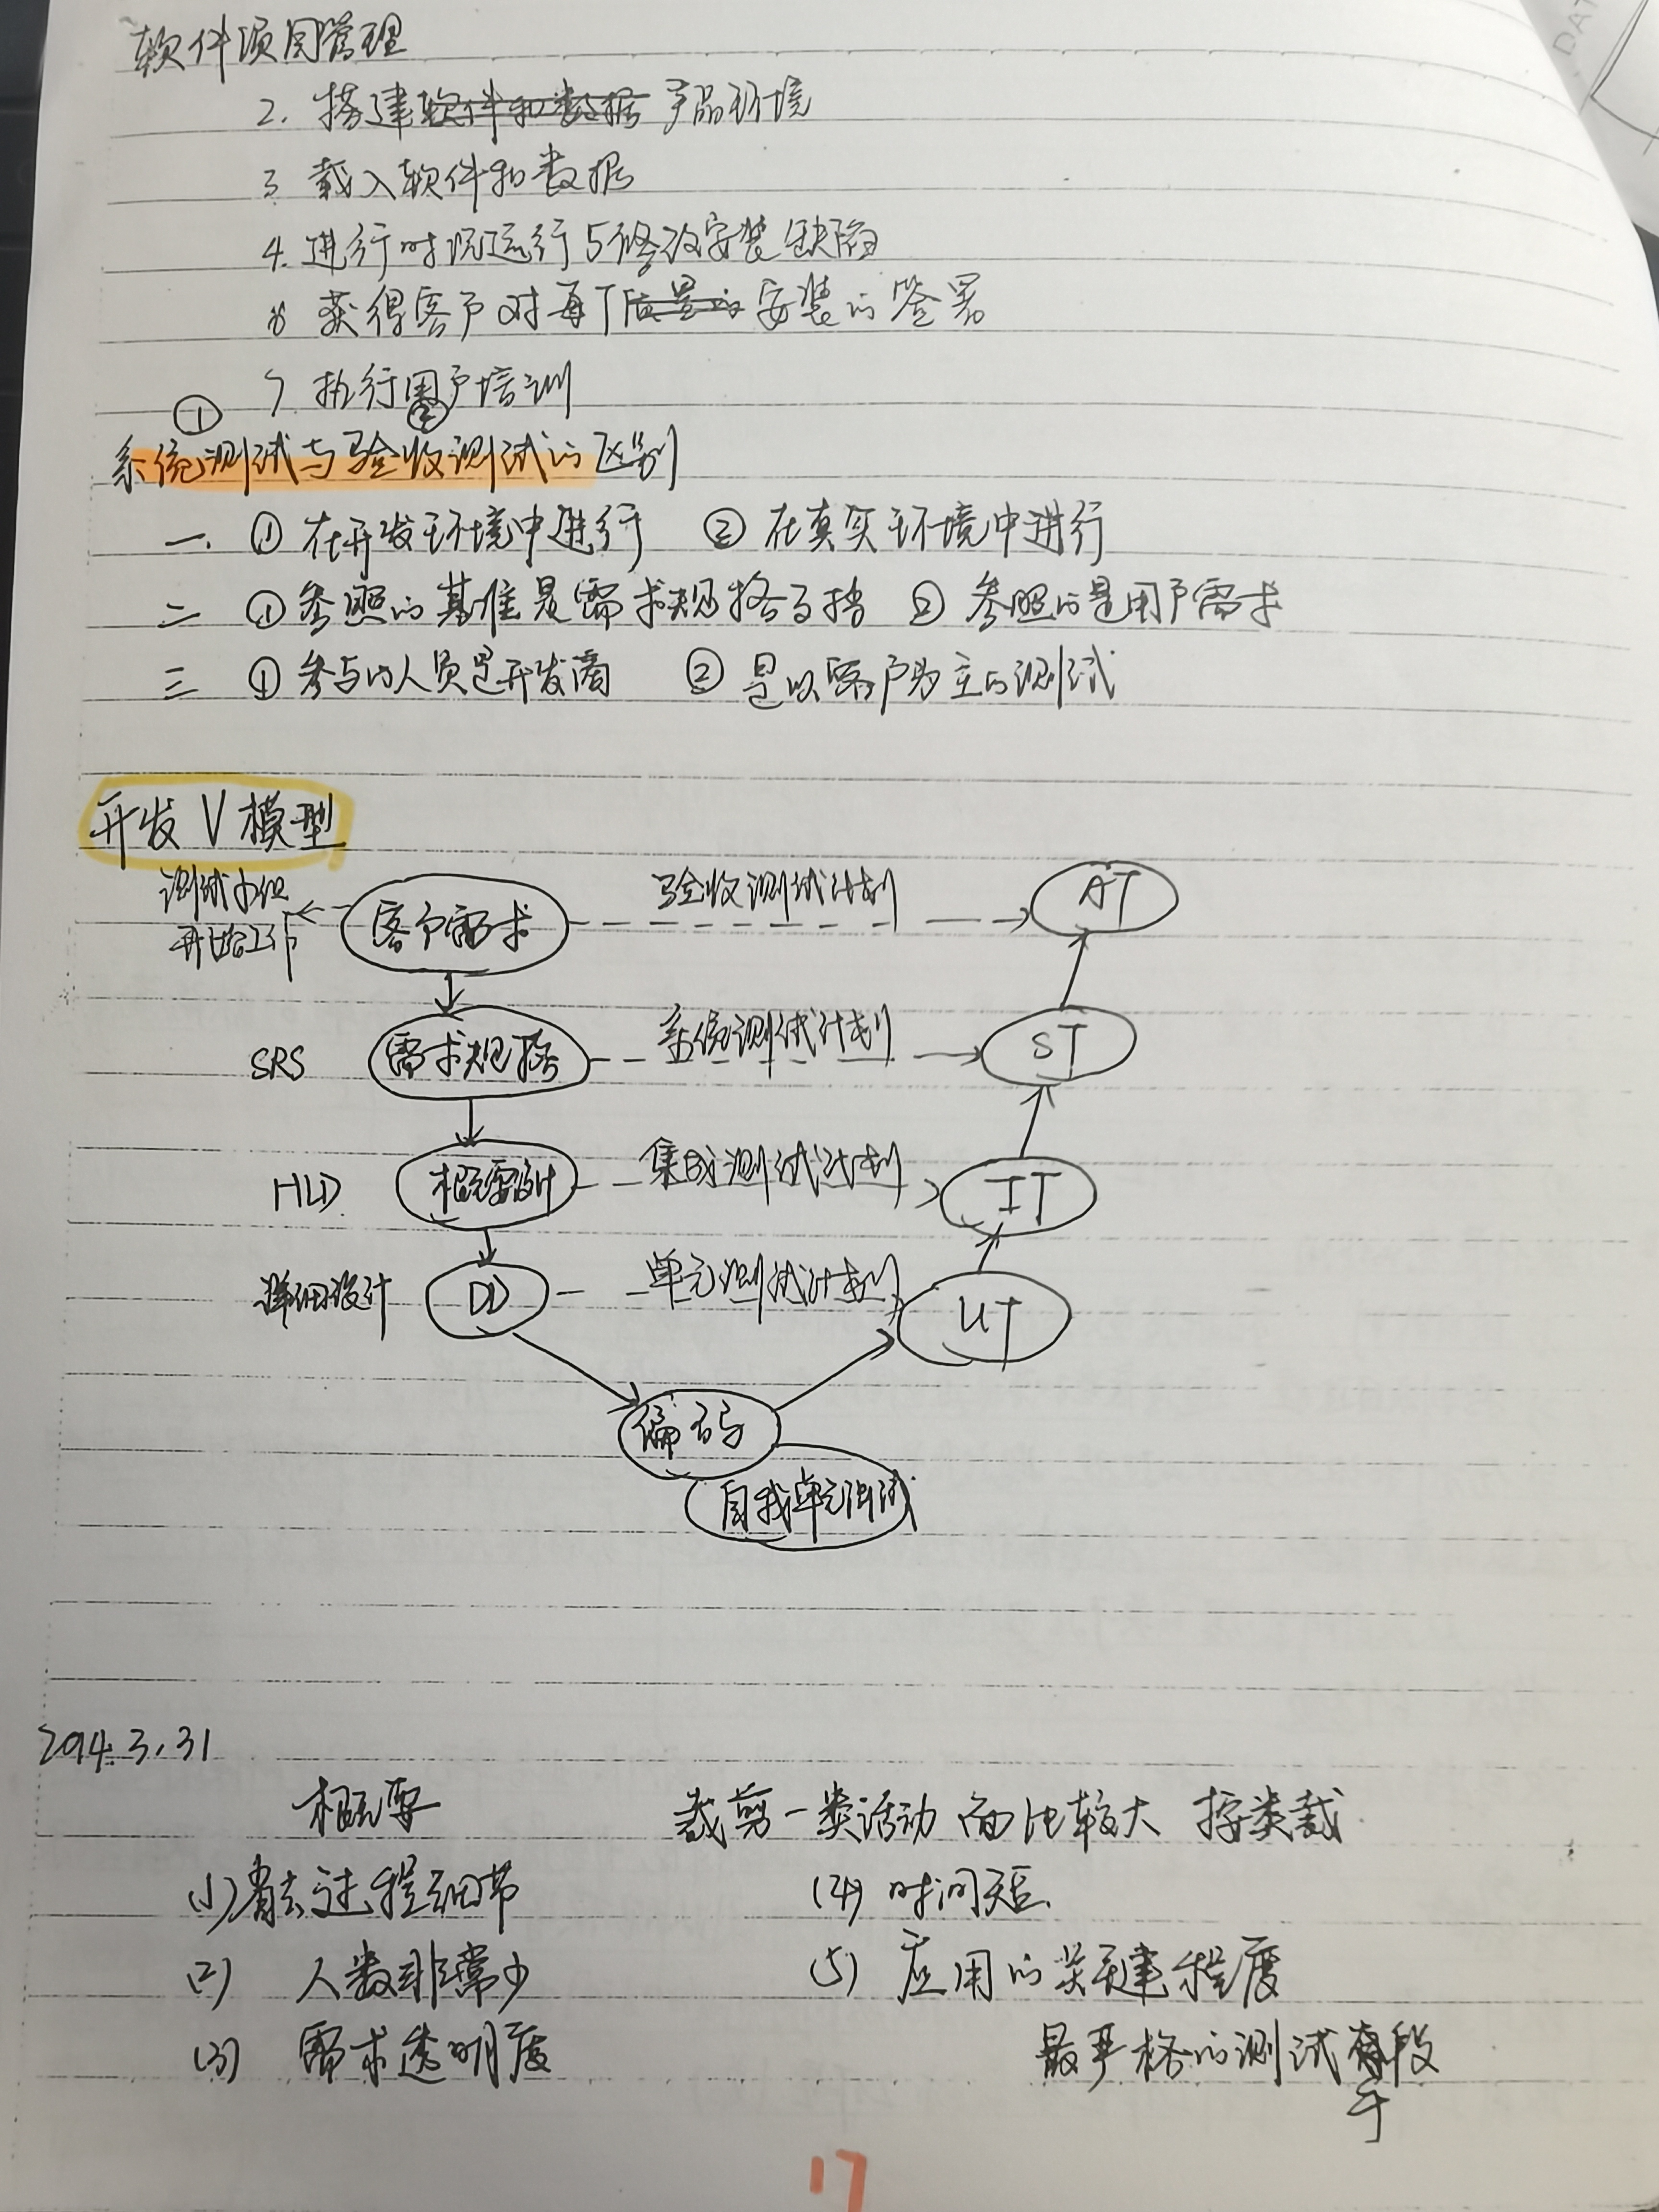 软件项目管理
2. 搭建软件和数据产品环境
3. 载入软件和数据
4. 进行时况运行与修改安装缺陷
获得客户对每个安装的签署
7 执行用户培训
① ②
系统测试与验收测试的区别
一. ① 在开发环境中进行 ② 在真实环境中进行
二 ① 参照的基准是需求规格 ② 参照的是用户需求
三 ① 参与的人员是开发商 ② 是以客户为主的测试
开发V模型
测试小组 客户需求 验收测试计划 AT
开始工作
SRS 需求规格 系统测试计划 ST
HLD 概要设计 集成测试计划 IT
详细设计 DD 单元测试计划 UT
编码
自我单元测试
2014.3.31
概要 裁剪一类活动 面比较大 按类裁
(1) 省去过程细节 (4) 时间短
(2) 人数非常少 (5) 应用的关键程度
(3) 需求透明度 最严格的测试手段
17
DAT